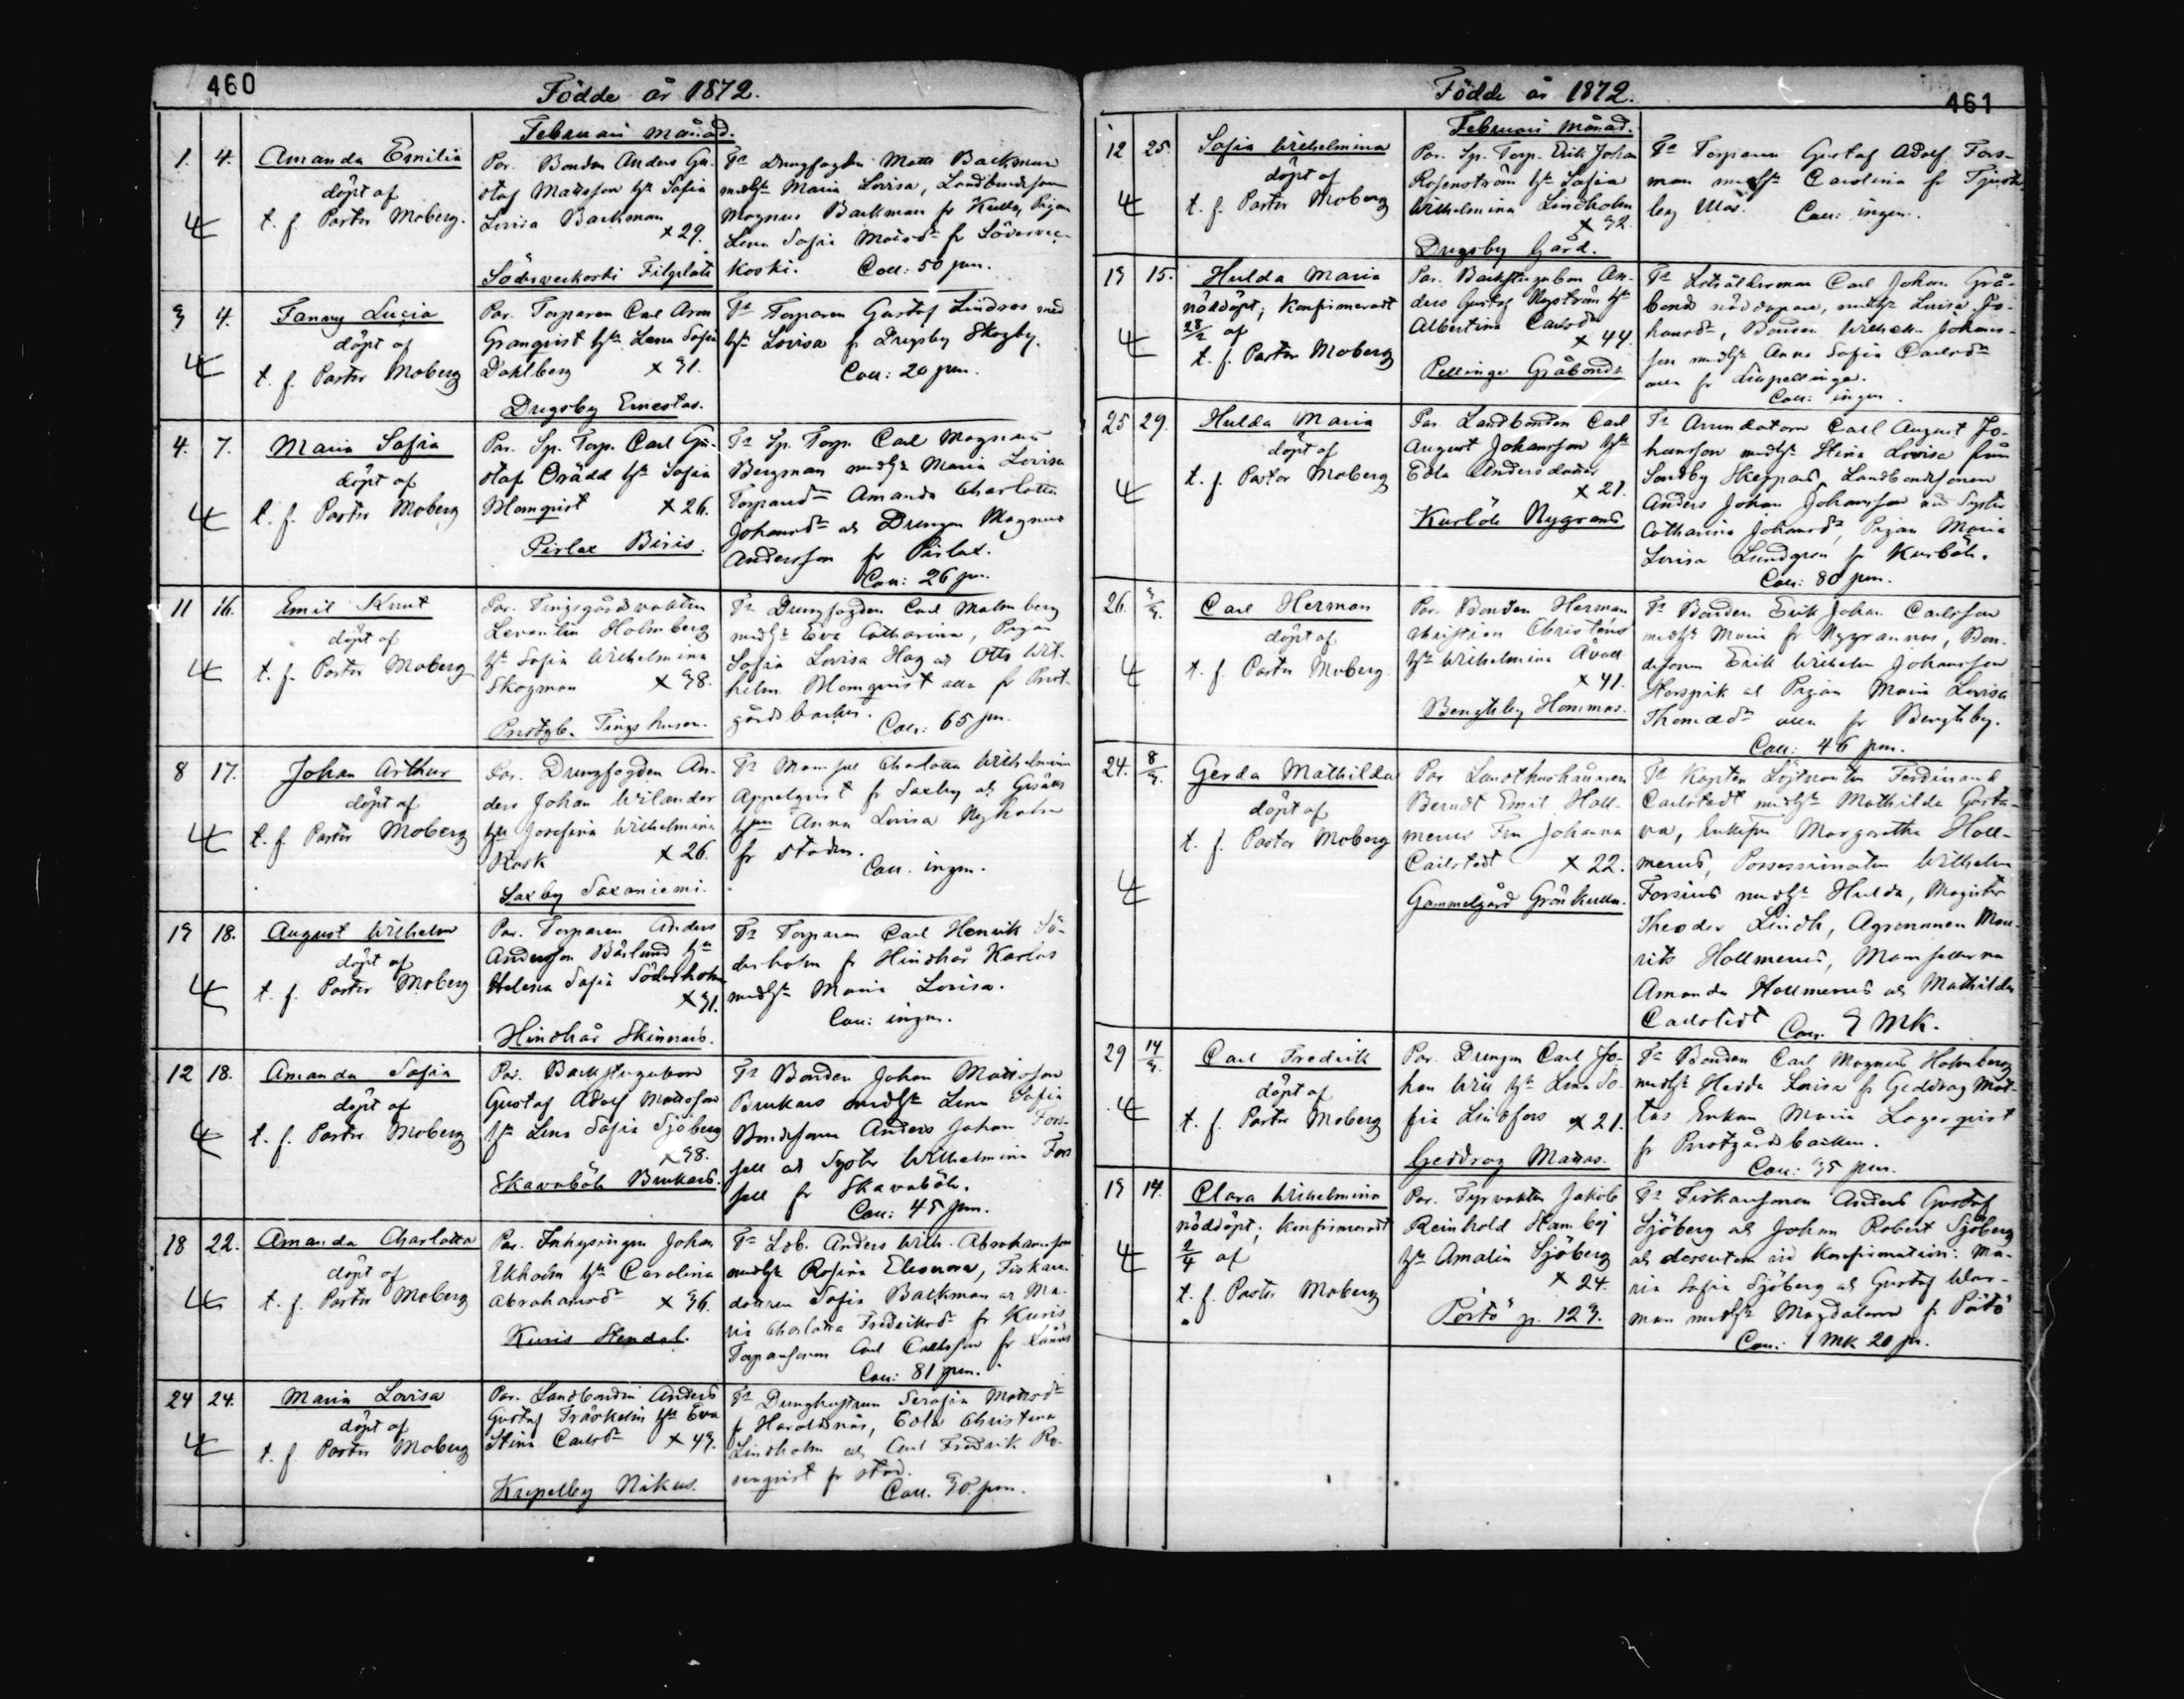 460
Födde år 1872.
Februari månad.
1. 4. Amanda Emilia
döpt af
t. f. Pastor Moberg.
Par. Bonden Anders Gu-
staf Matsson hu Sofia
Lovisa Backman
x 29.
Söderveckoski Filplats
Fr Drengfogden Matts Backman
med hu Maria Lovisa, Landbondesonen
Magnus Backman fr Kullo, Pigan
Lena Sofia Matsdr fr Söderveck-
koski. Coll: 50 pen.
3 4. Fanny Lucia
döpt af
t. f. Pastor Moberg
Par. Torparen Carl Aron
Granqvist hu Lena Sofia
Dahlberg x 31.
Drägsby Ernestas.
Fr Torparen Gustaf Lindroos med
hu Lovisa fr Drägsby Skogby.
Coll: 20 pen.
4. 7. Maria Sofia
döpt af
t. f. Pastor Moberg
Par. Sp. Torp. Carl Gu-
staf Orädd hu Sofia
Blomqvist x 26.
Pirlax Biris.
Fr Sp. Torp. Carl Magnus
Bergman med hu Maria Lovisa
Torparedr Amanda Charlotta
Johansdr och Drengen Magnus
Andersson fr Pirlax.
Coll: 26 pen.
11 16. Emil Knut
döpt af
t. f. Pastor Moberg
Par. Tingsgårdvakten
Leventin Holmberg
hu Sofia Wilhelmina
Skogman x 38.
Prestgb. Tings husen.
Fr Drengfogden Carl Malmberg
med hu Eva Catharina, Pigan
Sofia Lovisa Hag och Otto Wil-
helm Blomqvist alla fr Prest-
gårds backen. Coll: 65 pen.
8 17. Johan Arthur
döpt af
t. f. Pastor Moberg
Par. Drengfogden An-
ders Johan Wilander
hu Josefina Wilhelmina
Rask x 26.
Saxby Saxaniemi.
Fr Mamsell Charlotta Wilhelmina
Appelqvist fr Saxby och
Anna Lovisa Nyholm
fr staden.
Coll. ingen.
19 18. August Wilhelm
döpt af
t. f. Pastor Moberg
Par. Torparen Anders
Andersson Bärlund hu
Helena Sofia Söderholm
x 31.
Hindhår Skinnars.
Fr Torparen Carl Henrik Sö-
derholm fr Hindhår Karlos
med hu Maria Lovisa.
Coll: ingen.
12 18. Amanda Sofia
döpt af
t. f. Pastor Moberg
Par. Backstugubon
Gustaf Adolf Mattsson
hu Lena Sofia Sjöberg
x 38.
Skavaböle Brukars.
Fr Bonden Johan Mattsson
Brukars med hu Lena Sofia
Bondesonen Anders Johan Fors-
sell och Syster Wilhelmina Fors
sell fr Skavaböle.
Coll: 45 pen.
18 22. Amanda Charlotta
döpt af
t. f. Pastor Moberg
Par. Inhysingen Johan
Ekholm hu Carolina
Abrahamsdr x 36.
Kuris Stendal.
Fr Lob. Anders Wilh. Abrahamsson
med hu Rosina Eleonora, Fiskare
dottren Sofia Backman och Ma-
ria Charlotta Fredriksdr fr Kuris
Torparesonen Carl Carlsson fr
Coll: 81 pen.
24 24. Maria Lovisa
döpt af
t. f. Pastor Moberg
Par. Landbonden Anders
Gustaf hu Eva
Stina Carlsdr x 43.
Krepelby Nikus.
Fr Drenghustrun Serafia Mattsdr
fr Haraldsnäs, Edla Christina
Lindholm och Carl Fredrik Ro-
senqvist fr stad.
Coll. 30 pen.
461
Födde år 1872.
Februari månad.
12 25. Sofia Wilhelmina
döpt af
t. f. Pastor Moberg
Par. Sp. Torp. Erik Johan
Rosenström hu Sofia
Wilhelmina Lindholm
x 32.
Drägsby Gård.
Fr Torparen Gustaf Adolf Fors-
man med hu Carolina fr Tjuster-
by Coll: ingen.
19 15. Hulda Maria
nöddöpt; konfirmeradt
28/2 af
t. f. Pastor Moberg
Par. Backstugubon An-
ders Gustaf Nyström hu
Albertina Carlsdr
x 44.
Pellinge Gråbonds
Fr Lotsålderman Carl Johan Grå-
bonds nöddopare, med hu Lovisa Jo-
hansdr, Bonden Wilhelm Johans-
son med hu Anna Sofia Carlsdr
alla fr Lillpellinge.
Coll: ingen.
25 29. Hulda Maria
döpt af
t. f. Pastor Moberg
Par. Landbonden Carl
August Johansson hu
Edla Andersdotter
x 21.
Karlöle Nygrans
Fr Arrendatorn Carl August Jo-
hansson med hu Stina Lovisa från
Sondby Skeppars Landbondesonen
Anders Johan Johansson och Syster
Catharina Johansdr, Pigan Maria
Lovisa Lundgren fr Karlöle.
Coll: 80 pen.
26. 3/3. Carl Herman
döpt af
t. f. Pastor Moberg.
Par. Bonden Herman
Christian Christéns
hu Wilhelmina Åvall
x 41.
Bengtsby Hommas.
Fr Bonden Erik Johan Carlsson
med hu Maria fr Nygrannas, Bon-
desonen Erik Wilhelm Johansson
Storspik och Pigan Maria Lovisa
Thomædr alla fr Bengtsby.
Coll: 46 pen.
24. 8/3. Gerda Mathilda
döpt af
t. f. Pastor Moberg
Par Landthushållaren
Berndt Emil Holl-
merus Fru Johanna
Carlstedt x 22.
Gammelgård Grönkulla.
Fr Kapten Löjtnanten Ferdinand
Carlstedt med hu Mathilda Gusta-
va, Enkefru Margaretha Holl-
merus, Possessionaten Wilhelm
Forsius med hu Hulda, Magister
Theodor Lindh, Agronomen Mau-
ritz Hollmerus, Mamsellerna
Amanda Hollmerus och Mathilda
Carlstedt Coll. 3 MK.
29 14/3. Carl Fredrik
döpt af
t. f. Pastor Moberg
Par. Drengen Carl Jo-
han Will hu Lena So-
fia Lindfors x 21.
Geddrag Mattas.
Fr Bonden Carl Magnus Holmberg
med hu Hedda Lovisa fr Geddrag Mat-
tas Enkan Maria Lagerqvist
fr Prestgårdsbacken.
Coll: 35 pen.
19 14. Clara Wilhelmina
nöddöpt; konfirmeradt
2/4 af
t. f. Pastor Moberg
Par. Fyrvakten Jakob
Reinhold Stambej
hu Amalia Sjöberg
x 24.
Pörtö p. 123.
Fr Fiskaresonen Anders Gustaf
Sjöberg och Johan Robert Sjöberg
och dessutom vid konfirmation: Ma-
ria Sofia Sjöberg och Gustaf Wes-
man med hu Magdalena fr Pörtö
Coll: 1 MK 20 pen.